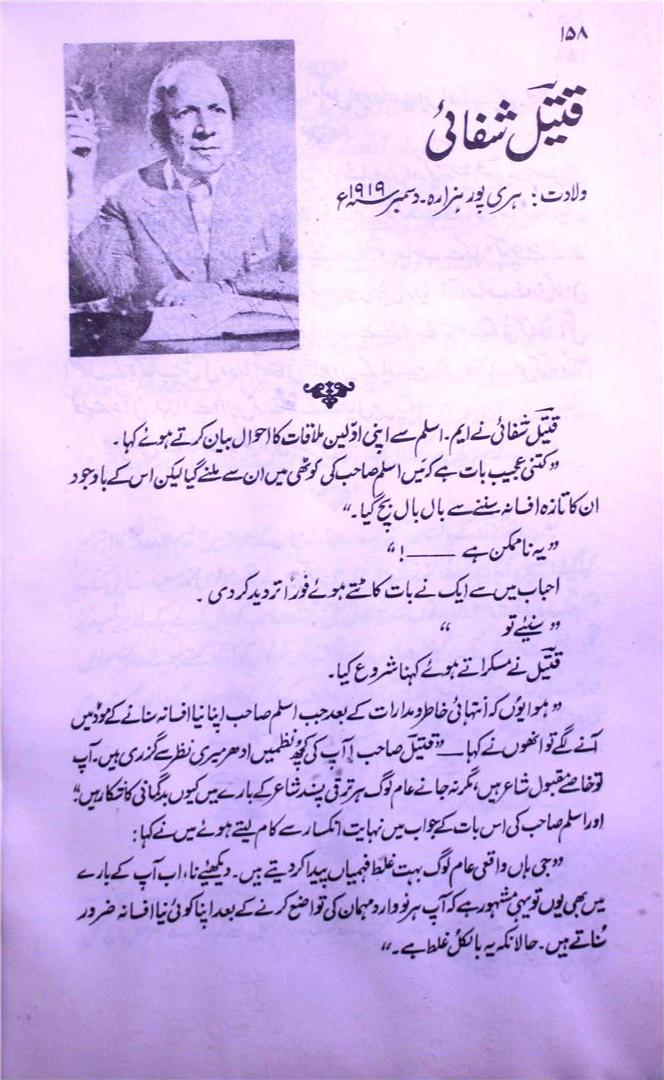 ۱۵۸
قتیل شفائی
ولادت: ہری پور ہزارہ۔ دسمبر ۱۹۱۹ء
قتیل شفائی نے ایم۔ اسلم سے اپنی اوّلین ملاقات کا احوال بیان کرتے ہوئے کہا۔
”کتنی عجیب بات ہے کہ میں اسلم صاحب کی کوٹھی میں ان سے ملنے گیا لیکن اس کے باوجود
ان کا تازہ افسانہ سننے سے بال بال بچ گیا۔“
”یہ ناممکن ہے ——!“
احباب میں سے ایک نے بات کاٹتے ہوئے فوراً تردید کر دی۔
”سنیئے تو “
قتیل نے مسکراتے ہوئے کہنا شروع کیا۔
”ہوا یوں کہ انتہائی خاطر و مدارات کے بعد جب اسلم صاحب اپنا نیا افسانہ سنانے کے موڈ میں
آنے لگے تو انھوں نے کہا — ”قتیل صاحب! آپ کی کچھ نظمیں ادھر میری نظر سے گزری ہیں۔ آپ
تو خاصے مقبول شاعر ہیں، مگر نہ جانے عام لوگ ہر ترقی پسند شاعر کے بارے میں کیوں بدگمانی کا شکار ہیں“
اور اسلم صاحب کی اس بات کے جواب میں نہایت انکسار سے کام لیتے ہوئے میں نے کہا:
”جی ہاں واقعی عام لوگ بہت غلط فہمیاں پیدا کر دیتے ہیں۔ دیکھئیے نا، اب آپ کے بارے
میں بھی یوں تو یہی مشہور ہے کہ آپ ہر نو وارد مہمان کی تواضع کرنے کے بعد اپنا کوئی نیا افسانہ ضرور
سُناتے ہیں۔ حالانکہ یہ بالکل غلط ہے۔“